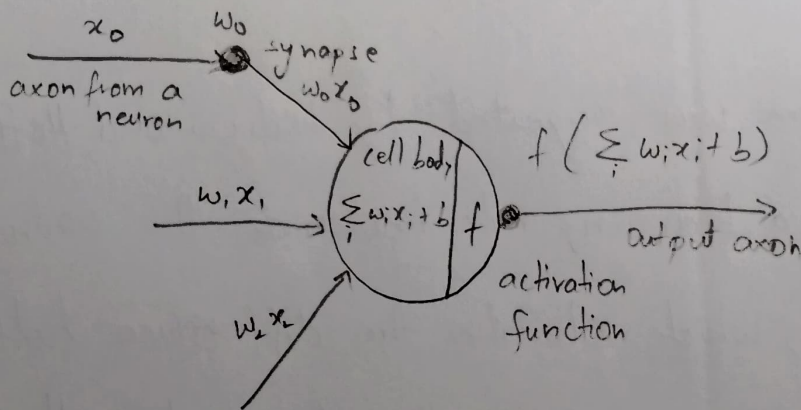 x₀
w₀
synapse
axon from a
neuron
w₀x₀
cell body
f ( Σᵢ wᵢxᵢ + b )
w₁x₁
Σᵢ wᵢxᵢ + b
f
output axon
activation
function
w₂x₂